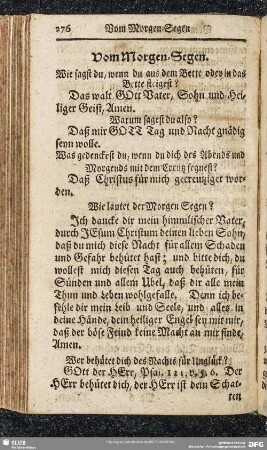 276 Vom Morgen-Segen
Vom Morgen-Segen.
Wie sagst du, wenn du aus dem Bette oder in das
Bette steigest?
Das walt GOtt Vater, Sohn und Hei-
liger Geist, Amen.
Warum sagest du also?
Daß mir GOTT Tag und Nacht gnädig
seyn wolle.
Was gedenckest du, wenn du dich des Abends und
Morgends mit dem Creutz segnest?
Daß Christus für mich gecreutziget wor-
den.
Wie lautet der Morgen Segen?
Ich dancke dir mein himmlischer Vater,
durch JEsum Christum deinen lieben Sohn,
daß du mich diese Nacht für allem Schaden
und Gefahr behütet hast; und bitte dich, du
wollest mich diesen Tag auch behüten, für
Sünden und allem Übel, daß dir alle mein
Thun und Leben wohlgefalle. Denn ich be-
fehle dir mein Leib und Seele, und alles in
deine Hände, dein heiliger Engel sey mit mir,
daß der böse Feind keine Macht an mir finde,
Amen.
Wer behütet dich des Nachts für Unglück?
GOtt der HErr, Psal. 121. v. 5. 6. Der
HErr behütet dich, der HErr ist dein Schat-
ten
SLUB
DFG